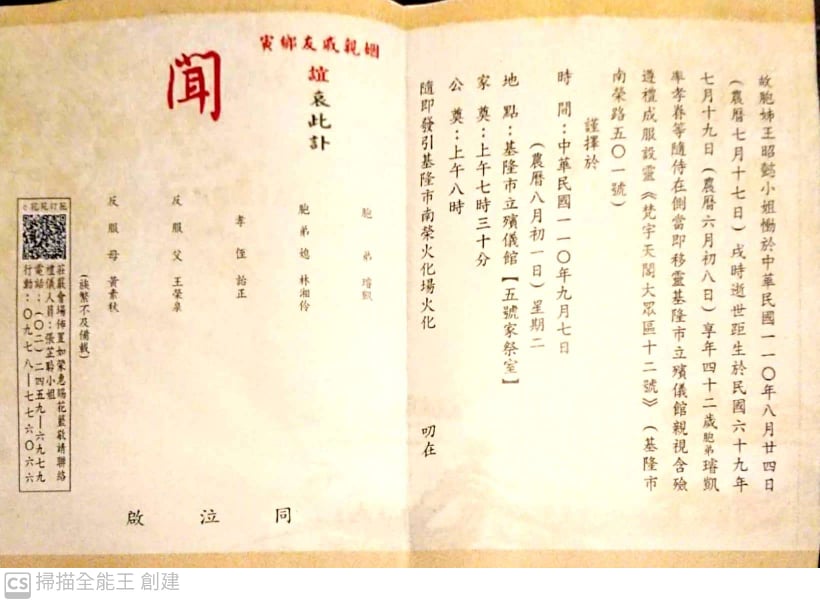 故胞姊王昭懿小姐慟於中華民國一一〇年八月廿四日
（農曆七月十七日）戌時逝世距生於民國六十九年
七月十九日（農曆六月初八日）享年四十二歲胞弟璿凱
率孝眷等隨侍在側當即移靈基隆市立殯儀館親視含殮
遵禮成服設靈《梵宇天閣大眾區十二號》（基隆市
南榮路五〇一號）
謹擇於
時間：中華民國一一〇年九月七日
（農曆八月初一日）星期二
地點：基隆市立殯儀館【五號家祭室】
家奠：上午七時三十分
公奠：上午八時
隨即發引基隆市南榮火化場火化
叨在
姻親戚友鄉寅
誼哀此訃
聞
胞弟 璿凱
胞弟媳 林湘伶
孝侄 詒正
反服父 王榮泉
反服母 黃素秋
（族繁不及備載）
同泣啟
莊嚴會場佈置如榮惠賜花籃敬請聯絡
禮儀人員：張芷聆小姐
電話：（〇二）二四五九—六九七九
行動：〇九七八—七七六〇六六
CS 掃描全能王 創建